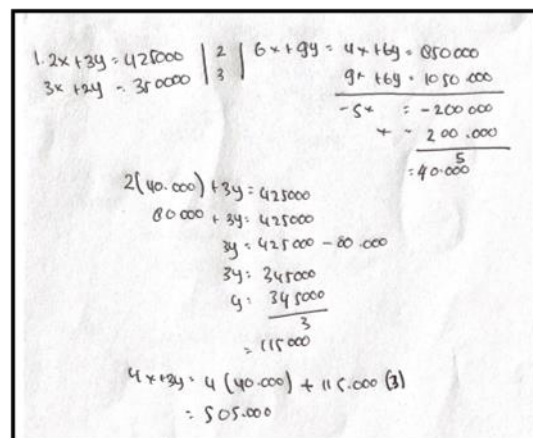 1. 2x + 3y = 425000 | 2 | 6x + 9y = 4x + 6y = 850000
3x + 2y = 350000 | 3 | 9x + 6y = 1050.000
-5x = -200000
x = 200.000
5
= 40.000
2(40.000) + 3y = 425000
80000 + 3y = 425000
3y = 425000 - 80.000
3y = 345000
y = 345000
3
= 115000
4x + 3y = 4(40.000) + 115.000 (3)
= 505.000